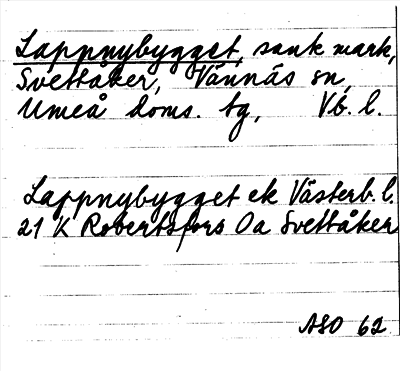 Lappnybygget, sank mark,
Svettåker, Vännäs sn,
Umeå doms. tg, Vb. l.
Lappnybygget ek Västerb. l.
21 K Robertsfors Oa Svettåker
ASO 62